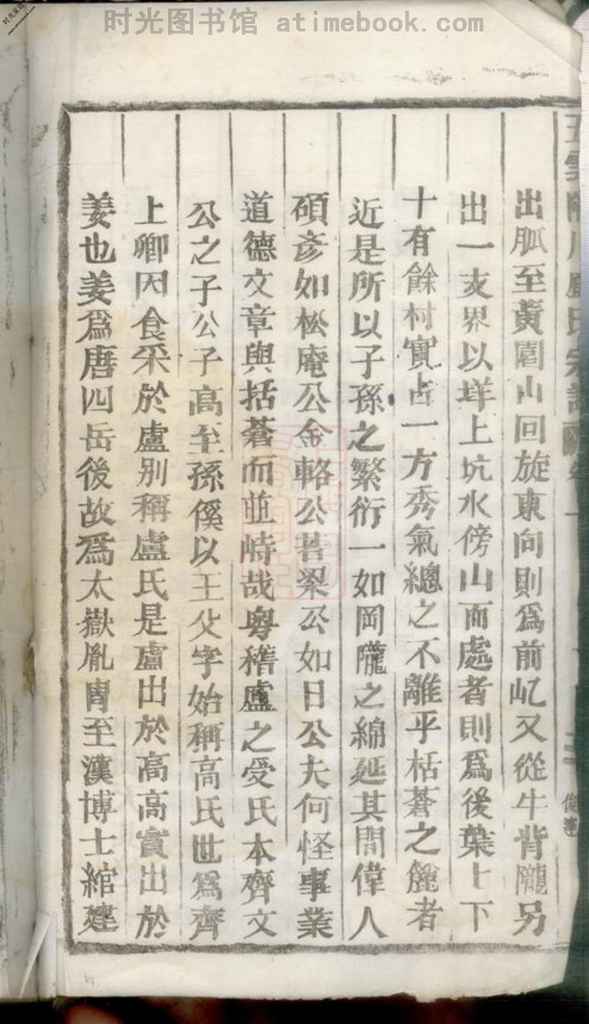 时光图书馆 - atimebook.com
出胍至黃園山回旋東向則爲前屹又從牛背隴另
出一支界以垟上坑水傍山而處者則爲後葉上下
十有餘村實占一方秀氣總之不離乎栝蒼之麓者
近是所以子孫之繁衍一如岡隴之綿延其間偉人
碩彥如松庵公金輅公碁梁公如日公夫何怪事業
道德文章與括蒼而並峙哉粤稽盧之受氏本齊文
公之子公子高至孫傒以王父字始稱高氏世爲齊
上卿因食采於盧別稱盧氏是盧出於高高實出於
姜也姜爲唐四岳後故爲太嶽胤冑至漢博士綰建